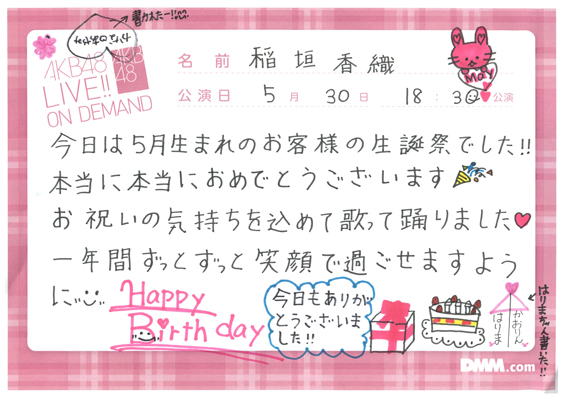 書かれたー!!
AKB48
LIVE!!
ON DEMAND
AKB
48
名前 稲垣香織
May
公演日 5月 30日 18:30 公演
今日は5月生まれのお客様の生誕祭でした!!
本当に本当におめでとうございます
お祝いの気持ちを込めて歌って踊りました♥
一年間ずっとずっと笑顔で過ごせますよう
に
Happy
Birthday
今日もありが
とうございま
した!!
かおりん
はりま
はりまちゃん書いた!!
DMM.com